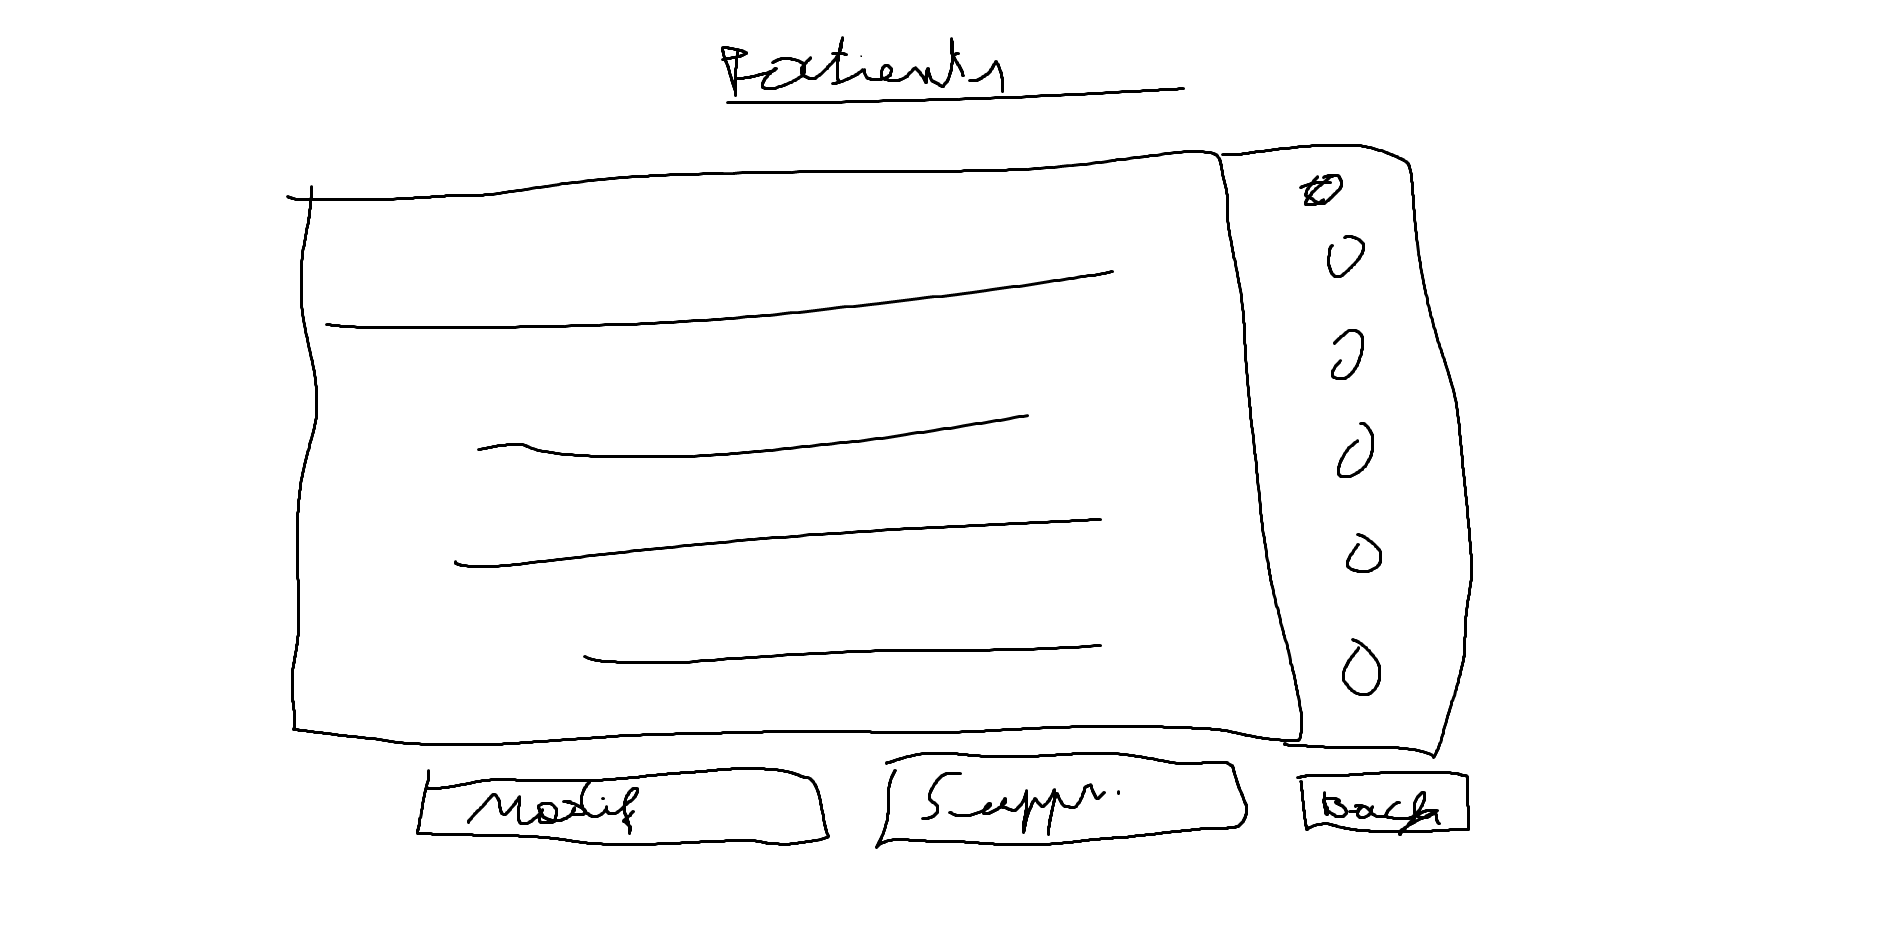 Patients
Modif
Suppr.
Back